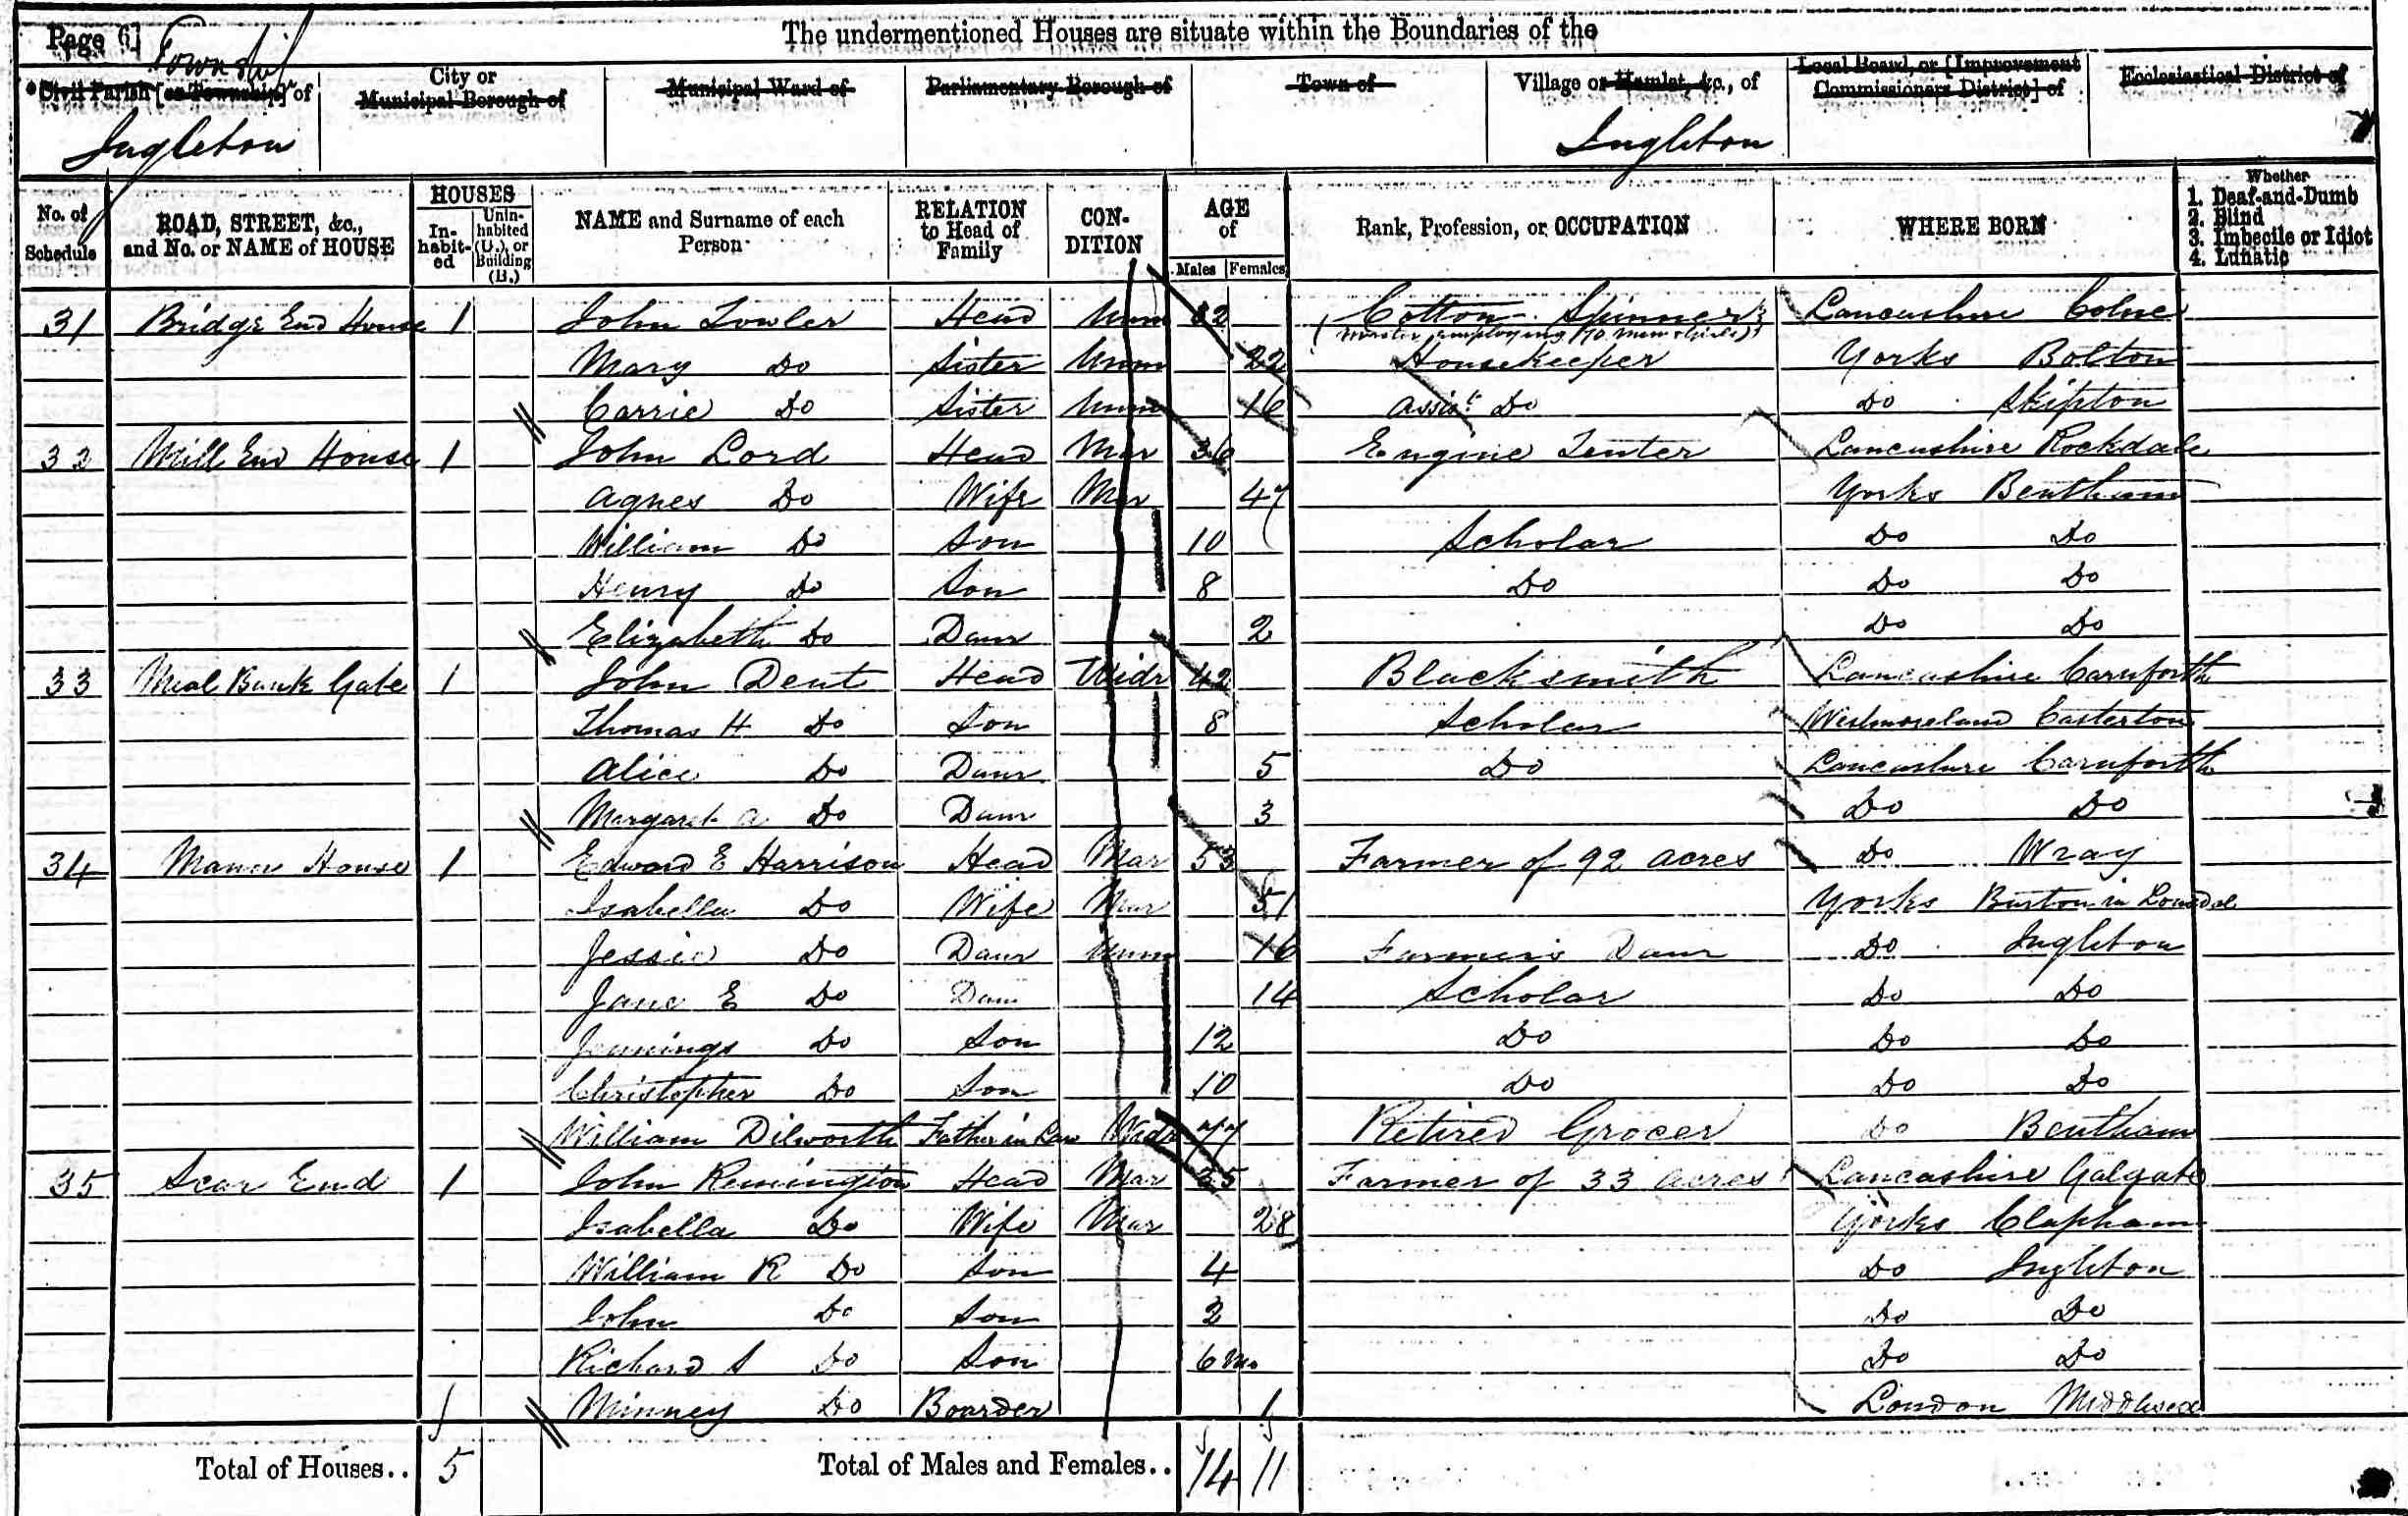 Page 6]
The undermentioned Houses are situate within the Boundaries of the
Township
Civil Parish [or Township] of
City or Municipal Borough of
Municipal Ward of
Parliamentary Borough of
Town of
Village or Hamlet, &c., of
Local Board, or [Improvement Commissioners District] of
Ecclesiastical District of
Ingleton
Ingleton
No. of Schedule
ROAD, STREET, &c., and No. or NAME of HOUSE
HOUSES
In-habit-ed
Unin-habited (U.), or Building (B.)
NAME and Surname of each Person
RELATION to Head of Family
CON-DITION
AGE of
Males Females
Rank, Profession, or OCCUPATION
WHERE BORN
Whether
1. Deaf-and-Dumb
2. Blind
3. Imbecile or Idiot
4. Lunatic
31 Bridge End House 1 John Fowler Head Unm 32 Cotton Spinner Lancashire Colne
(Master employing 70 men & girls)
Mary Do Sister Unm 22 Housekeeper Yorks Bolton
Carrie Do Sister Unm 16 Assist Do Do Skipton
32 Mill End House 1 John Lord Head Mar 36 Engine Tenter Lancashire Rockdale
Agnes Do Wife Mar 47 Yorks Bentham
William Do Son 10 Scholar Do Do
Henry Do Son 8 Do Do Do
Elizabeth Do Daur 2 Do Do
33 Meal Bank Gate 1 John Dent Head Widr 42 Blacksmith Lancashire Carnforth
Thomas H Do Son 8 Scholar Westmoreland Casterton
Alice Do Daur 5 Do Lancashire Carnforth
Margaret A Do Daur 3 Do Do
34 Manor House 1 Edward E Harrison Head Mar 53 Farmer of 92 acres Do Wray
Isabella Do Wife Mar 51 Yorks Burton in Lonsdal
Jessie Do Daur Unm 16 Farmer's Daur Do Ingleton
Jane E Do Daur 14 Scholar Do Do
Jennings Do Son 12 Do Do Do
Christopher Do Son 10 Do Do Do
William Dilworth Father in Law Widr 77 Retired Grocer Do Bentham
35 Scar End 1 John Remington Head Mar 35 Farmer of 33 acres Lancashire Galgate
Isabella Do Wife Mar 28 Yorks Clapham
William R Do Son 4 Do Ingleton
John Do Son 2 Do Do
Richard S Do Son 6 Mo Do Do
Minney Do Boarder 1 London Middlesex
Total of Houses.. 5 Total of Males and Females.. 14 11